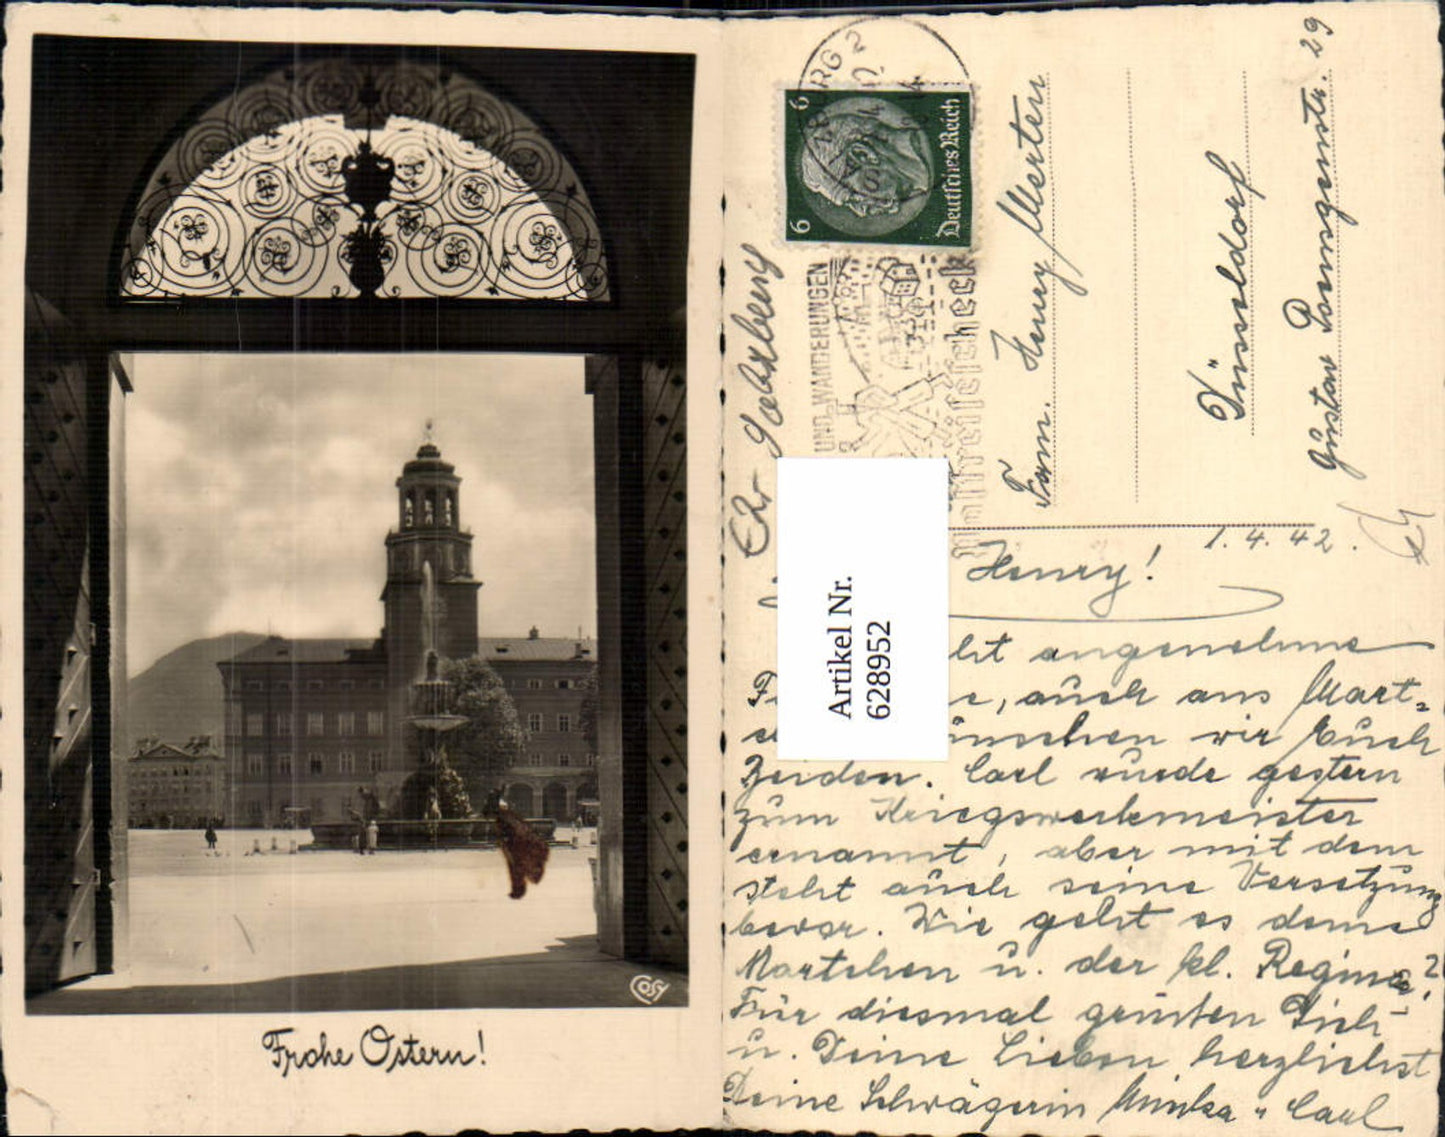 Cosy
Frohe Ostern!
RG 2
6 6
Deutsches Reich
UND WANDERUNGEN
Postreisescheck
Fam. Henry Merten
Düsseldorf
Gustav Poensgenstr. 29
Artikel Nr.
628952
1.4.42.
Henry!
angenehme
auch ans Mart=
wünschen wir Euch
beiden. Carl wurde gestern
zum Kriegswerkmeister
ernannt, aber mit dem
steht auch seine Versetzung
bevor. Wie geht es deme
Martchen u. der kl. Regina?
Für diesmal grüßen Dich
u. Deine Lieben herzlichst
Deine Schwägerin Minka u Carl